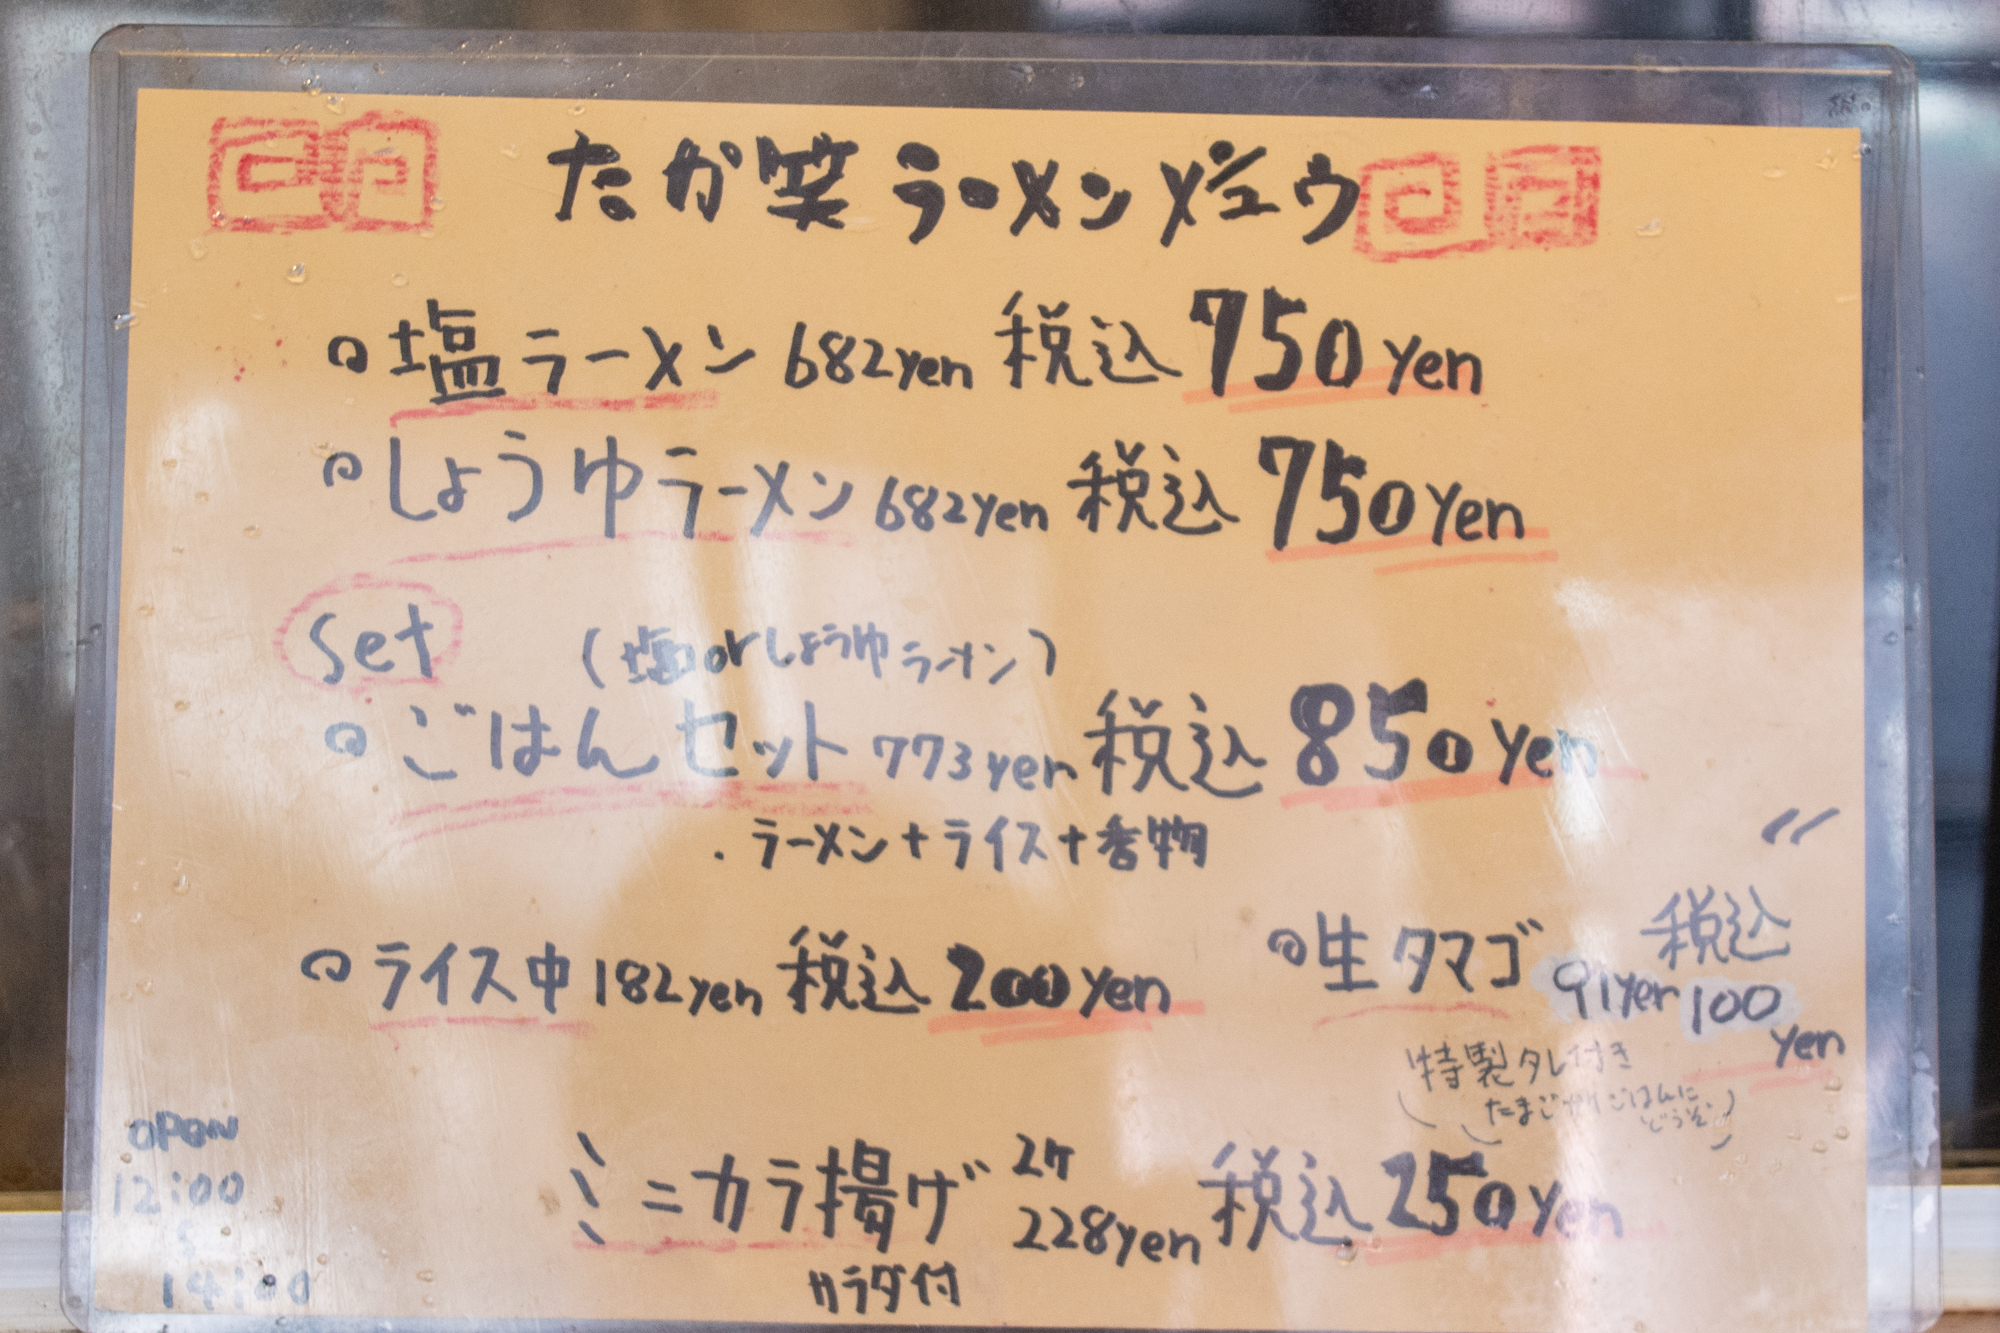 たか笑ラーメンメニュウ
塩ラーメン 682yen 税込 750yen
しょうゆラーメン 682yen 税込 750yen
Set (塩orしょうゆラーメン)
ごはんセット 773yen 税込 850yen
・ラーメン+ライス+香物
ライス中 182yen 税込 200yen
生タマゴ 91yen 税込 100yen
(特製タレ付き
たまごかけごはんに
どうぞ)
ミニカラ揚げ 2ケ 228yen 税込 250yen
サラダ付
OPEN
12:00
14:00